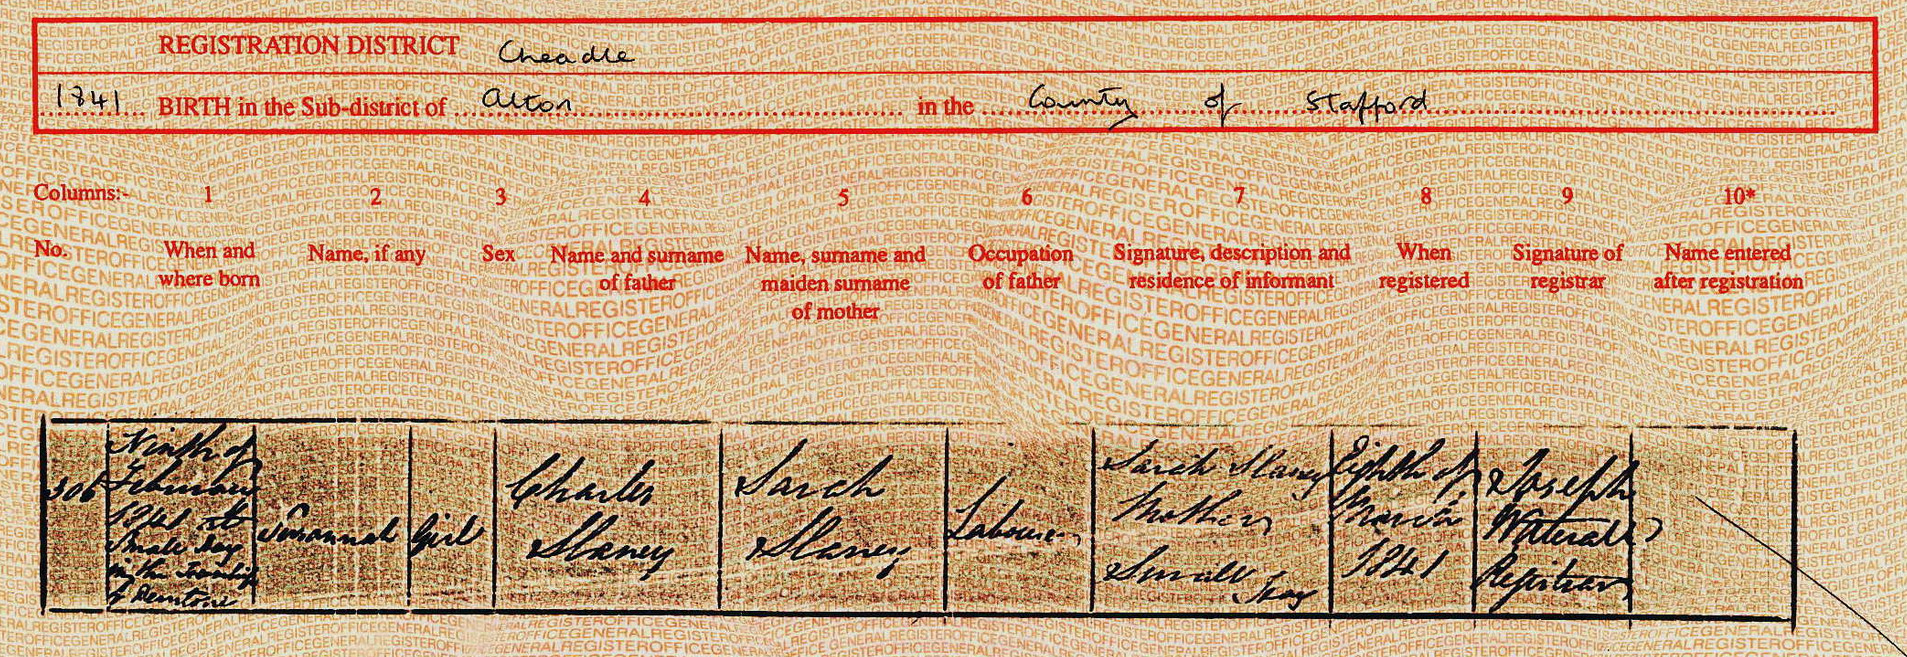 REGISTRATION DISTRICT Cheadle
1841 BIRTH in the Sub-district of Alton in the County of Stafford
Columns:- 1 2 3 4 5 6 7 8 9 10*
No. When and where born Name, if any Sex Name and surname of father Name, surname and maiden surname of mother Occupation of father Signature, description and residence of informant When registered Signature of registrar Name entered after registration
306
Ninth of
February
1841 at
in the Township
of
Susannah
Girl
Charles
Slaney
Sarah
Slaney
Labourer
Sarah Slaney
Mother
Small
Eighth of
March
1841
Joseph
Registrar